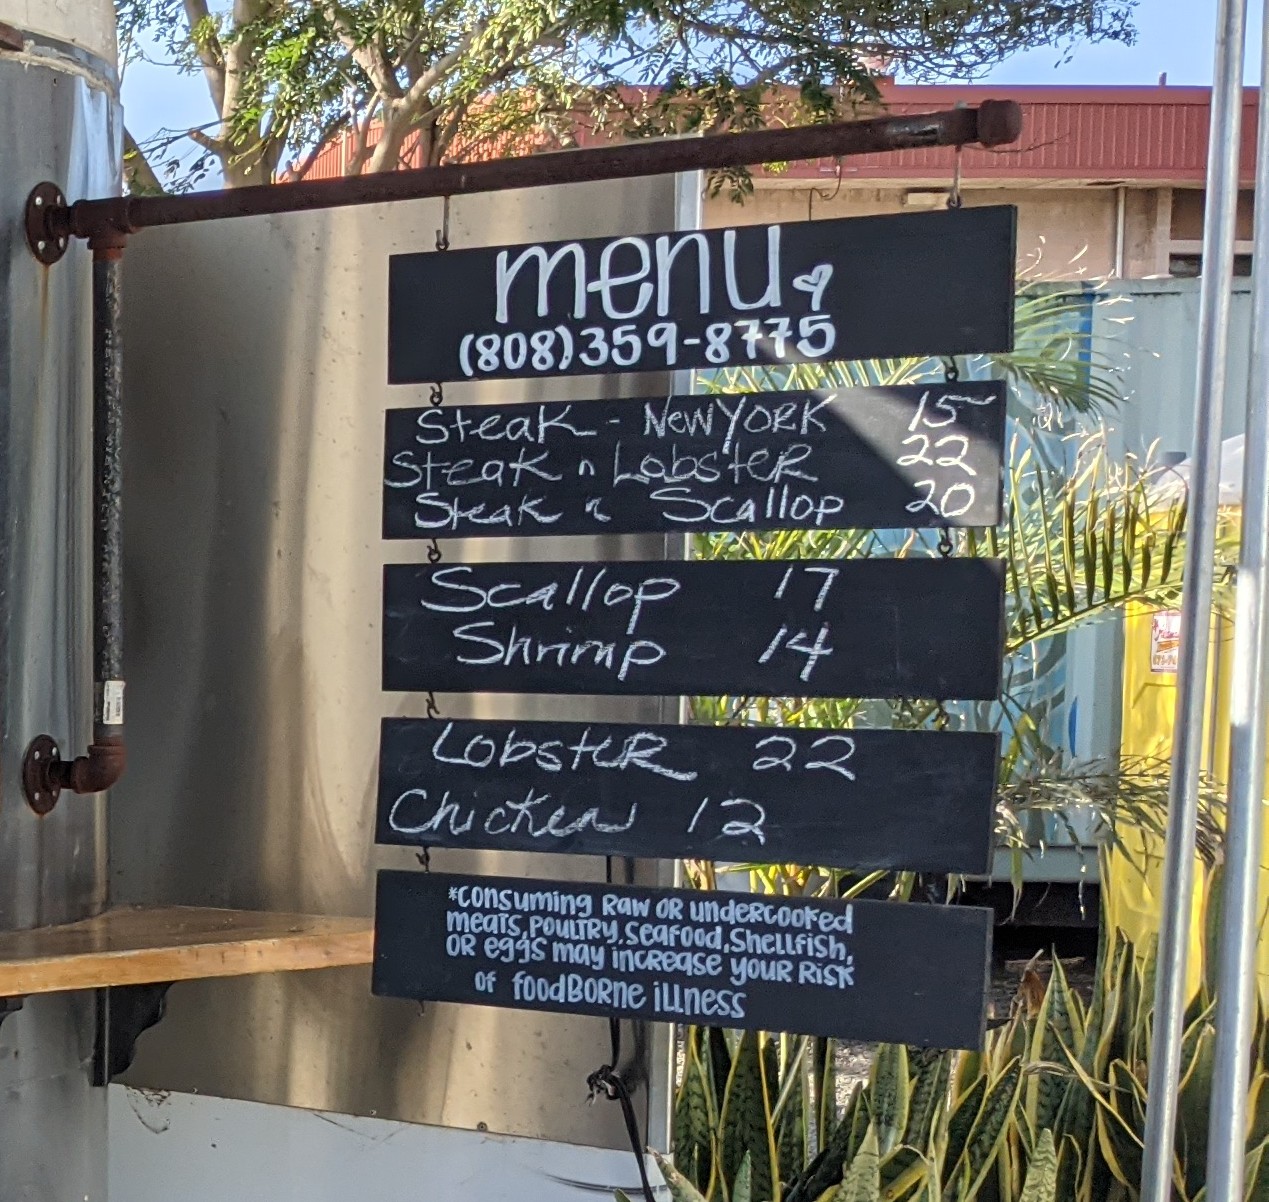 menu
(808)359-8775
Steak - New YORK 15
Steak n LobsteR 22
Steak n Scallop 20
Scallop 17
Shrimp 14
LobsteR 22
Chicken 12
*consuming Raw OR undercooked
meats, poultry, seafood, shellfish,
OR eggs may increase your Risk
of foodborne illness